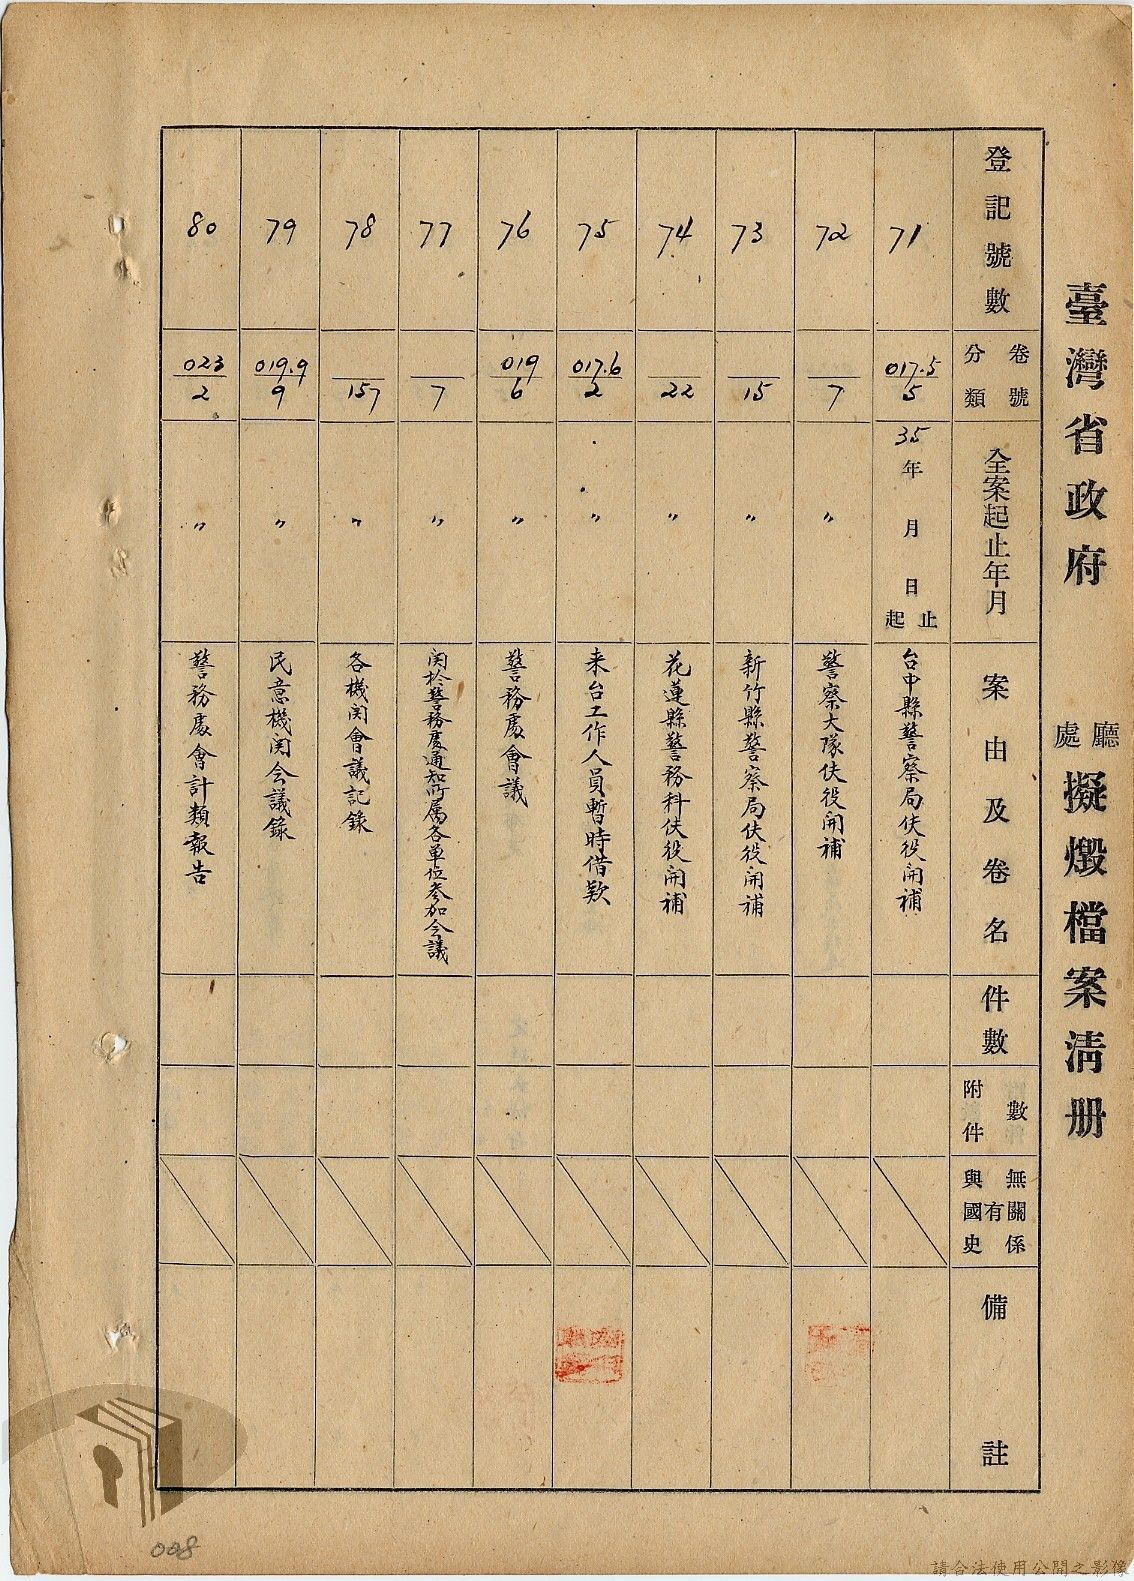 臺灣省政府 處廳 擬燬檔案清册
登記號數
分類 卷號
全案起止年月
案由及卷名
件數
附件 數
與國史 有 無關係
備註
71
017.5
5
35年 月 日 起止
台中縣警察局伕役開補
72
7
〃
警察大隊伕役開補
73
15
〃
新竹縣警察局伕役開補
74
22
〃
花蓮縣警務科伕役開補
75
017.6
2
〃
来台工作人員暫時借款
76
019
6
〃
警務處會議
77
7
〃
関於警務處通知所属各单位参加会議
78
157
〃
各機関會議記錄
79
019.9
9
〃
民意機関会議錄
80
023
2
〃
警務處會計類報告
008
請合法使用公開之影像